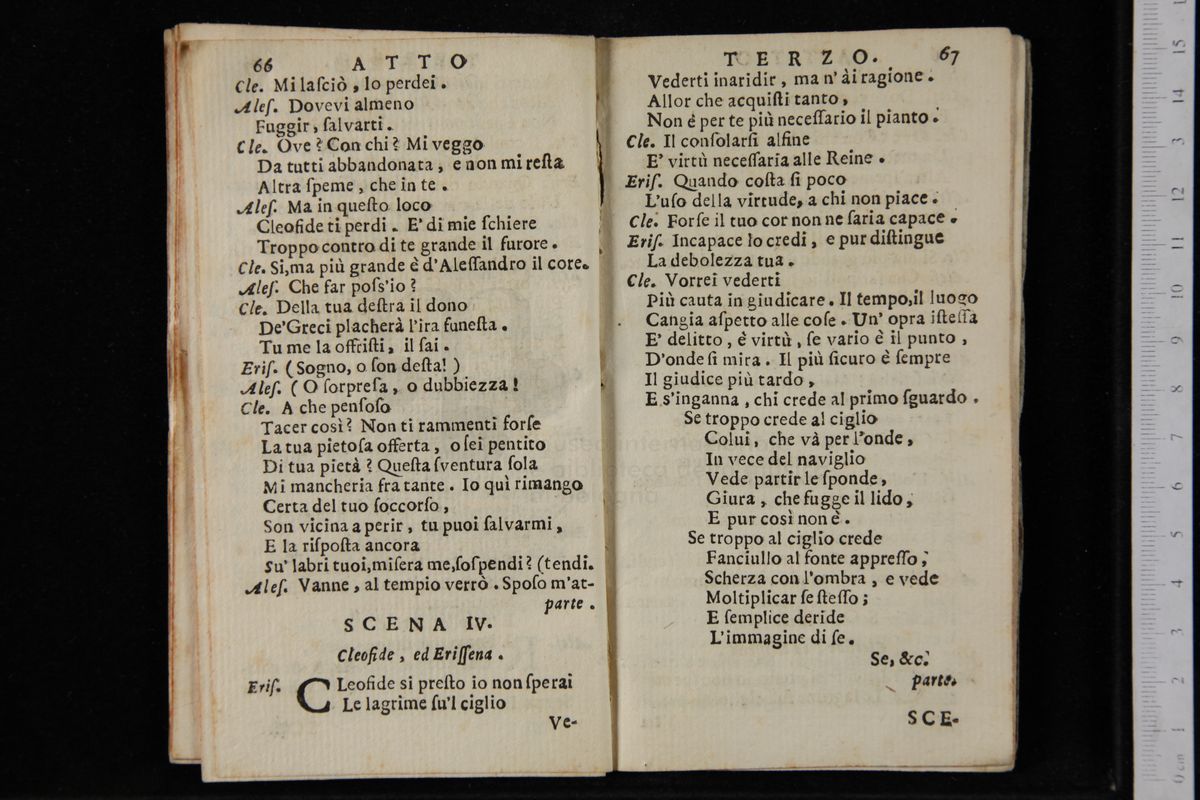 66 ATTO
Cle. Mi laſciò, Io perdei.
Aleſ. Dovevi almeno
Fuggir, ſalvarti.
Cle. Ove? Con chi? Mi veggo
Da tutti abbandonata, e non mi reſta
Altra ſpeme, che in te.
Aleſ. Ma in queſto loco
Cleofide ti perdi. E' di mie ſchiere
Troppo contro di te grande il furore.
Cle. Si,ma più grande è d'Aleſſandro il core.
Aleſ. Che far poſs'io?
Cle. Della tua deſtra il dono
De'Greci placherà l'ira funeſta.
Tu me la offriſti, il ſai.
Eriſ. (Sogno, o ſon deſta!)
Aleſ. (O ſorpreſa, o dubbiezza!
Cle. A che penſoſo
Tacer così? Non ti rammenti forſe
La tua pietoſa offerta, o ſei pentito
Di tua pietà? Queſta ſventura ſola
Mi mancheria fra tante. Io quì rimango
Certa del tuo ſoccorſo,
Son vicina a perir, tu puoi ſalvarmi,
E la riſpoſta ancora
Su' labri tuoi,miſera me,ſoſpendi? (tendi.
Aleſ. Vanne, al tempio verrò. Spoſo m'at-
parte.
SCENA IV.
Cleofide, ed Eriſſena.
Eriſ. CLeofide si preſto io non ſperai
Le lagrime ſu'l ciglio
Ve-
TERZO. 67
Vederti inaridir, ma n'ài ragione.
Allor che acquiſti tanto,
Non è per te più neceſſario il pianto.
Cle. Il conſolarſi alfine
E' virtù neceſſaria alle Reine.
Eriſ. Quando coſta ſi poco
L'uſo della virtude, a chi non piace.
Cle. Forſe il tuo cor non ne ſaria capace.
Eriſ. Incapace lo credi, e pur diſtingue
La debolezza tua.
Cle. Vorrei vederti
Più cauta in giudicare. Il tempo,il luogo
Cangia aſpetto alle coſe. Un' opra iſteſſa
E' delitto, è virtù, ſe vario è il punto,
D'onde ſi mira. Il più ſicuro è ſempre
Il giudice più tardo,
E s'inganna, chi crede al primo ſguardo.
Se troppo crede al ciglio
Colui, che và per l'onde,
In vece del naviglio
Vede partir le ſponde,
Giura, che fugge il lido,
E pur così non è.
Se troppo al ciglio crede
Fanciullo al fonte appreſſo,
Scherza con l'ombra, e vede
Moltiplicar ſe ſteſſo;
E ſemplice deride
L'immagine di ſe.
Se, &c.
parte.
SCE-